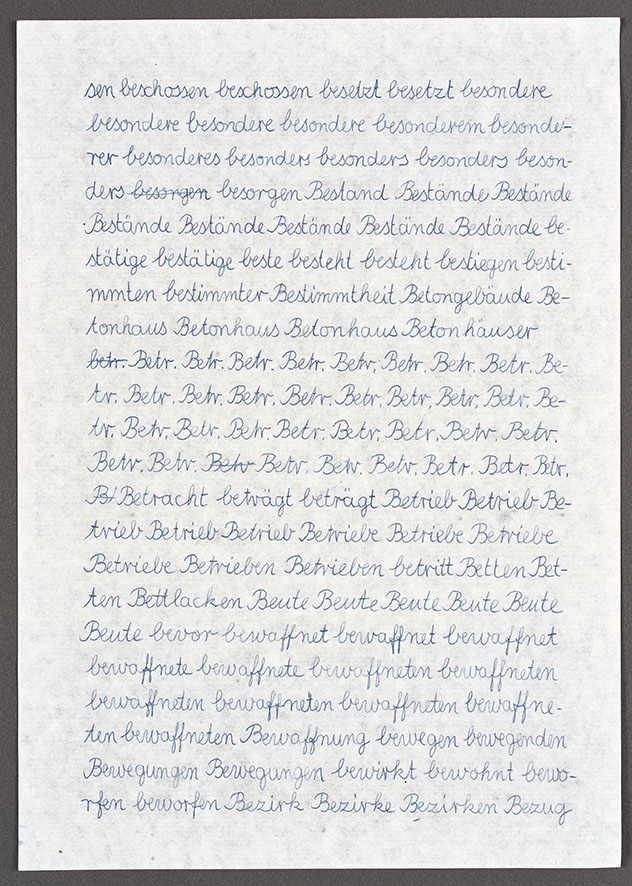 sen beschossen beschossen besetzt besetzt besondere
besondere besondere besondere besonderem besonde-
rer besonderes besonders besonders besonders beson-
ders besorgen besorgen Bestand Bestände Bestände
Bestände Bestände Bestände Bestände Bestände be-
stätige bestätige beste besteht besteht bestiegen besti-
mmten bestimmter Bestimmtheit Betongebäude Be-
tonhaus Betonhaus Betonhaus Betonhäuser
betr. Betr. Betr. Betr. Betr. Betr. Betr. Betr. Betr. Be-
tr. Betr. Betr. Betr. Betr. Betr. Betr. Betr. Betr. Be-
tr. Betr. Betr. Betr Betr. Betr. Betr. Betr. Betr.
Betr. Betr. Betr Betr. Betr. Betr. Betr. Betr. Betr.
B/ Betracht beträgt beträgt Betrieb Betrieb Be-
trieb Betrieb Betrieb Betriebe Betriebe Betriebe
Betriebe Betrieben Betrieben betritt Betten Bet-
ten Bettlacken Beute Beute Beute Beute Beute
Beute bevor bewaffnet bewaffnet bewaffnet
bewaffnete bewaffnete bewaffneten bewaffneten
bewaffneten bewaffneten bewaffneten bewaffne-
ten bewaffneten Bewaffnung bewegen bewegenden
Bewegungen Bewegungen bewirkt bewohnt bewo-
rfen beworfen Bezirk Bezirke Bezirken Bezug